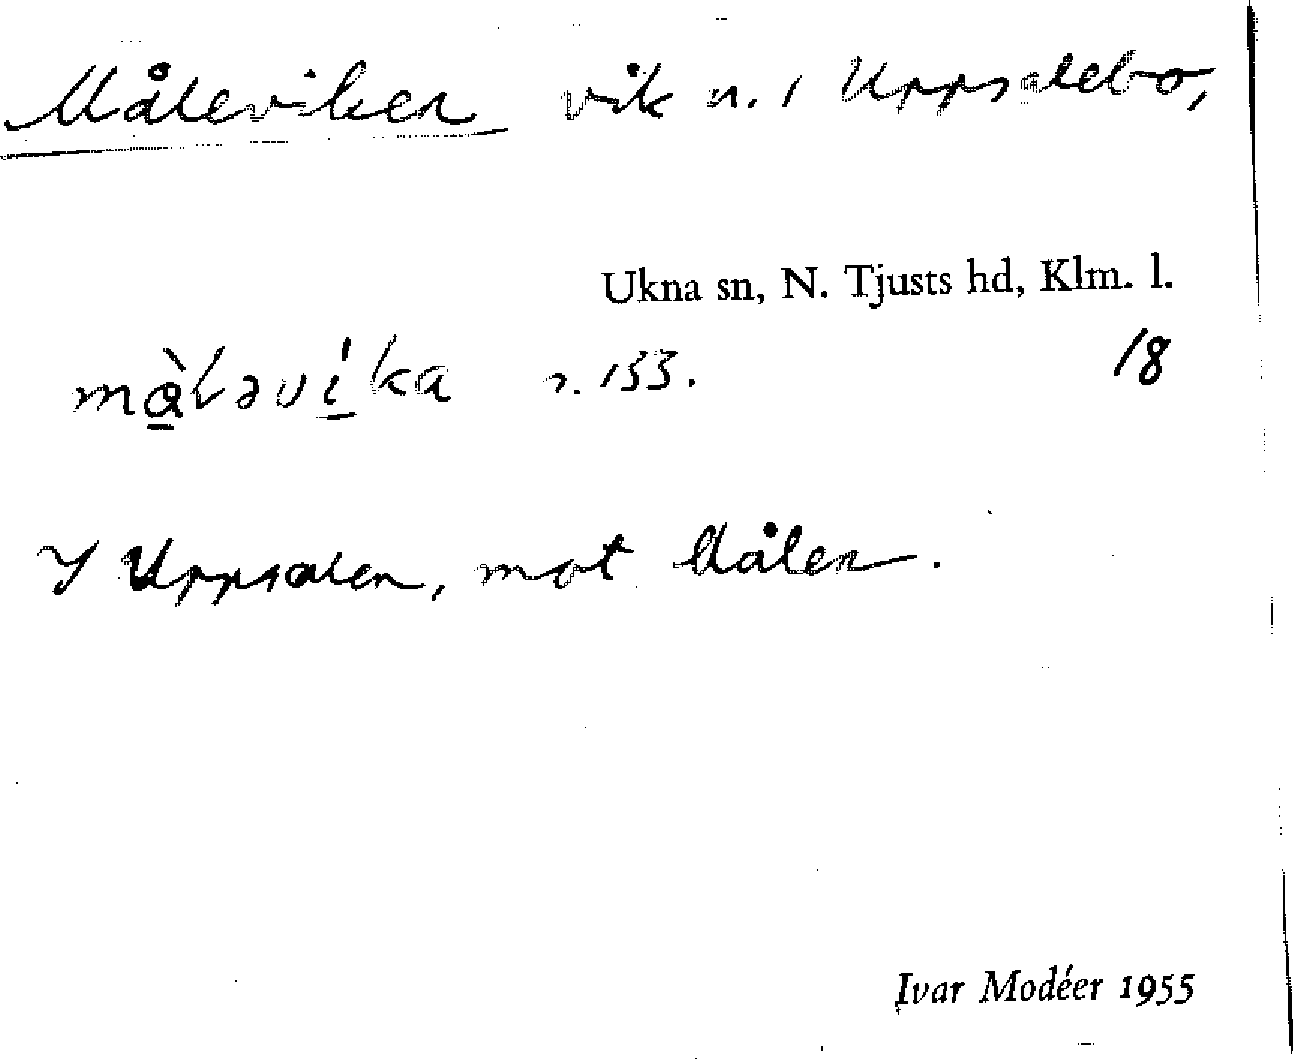 Måleviken vik n. i Uppsalebo,
Ukna sn, N. Tjusts hd, Klm. l.
màləvíka s. 133. 18
I Uppsalen, mot Målen.
Ivar Modéer 1955